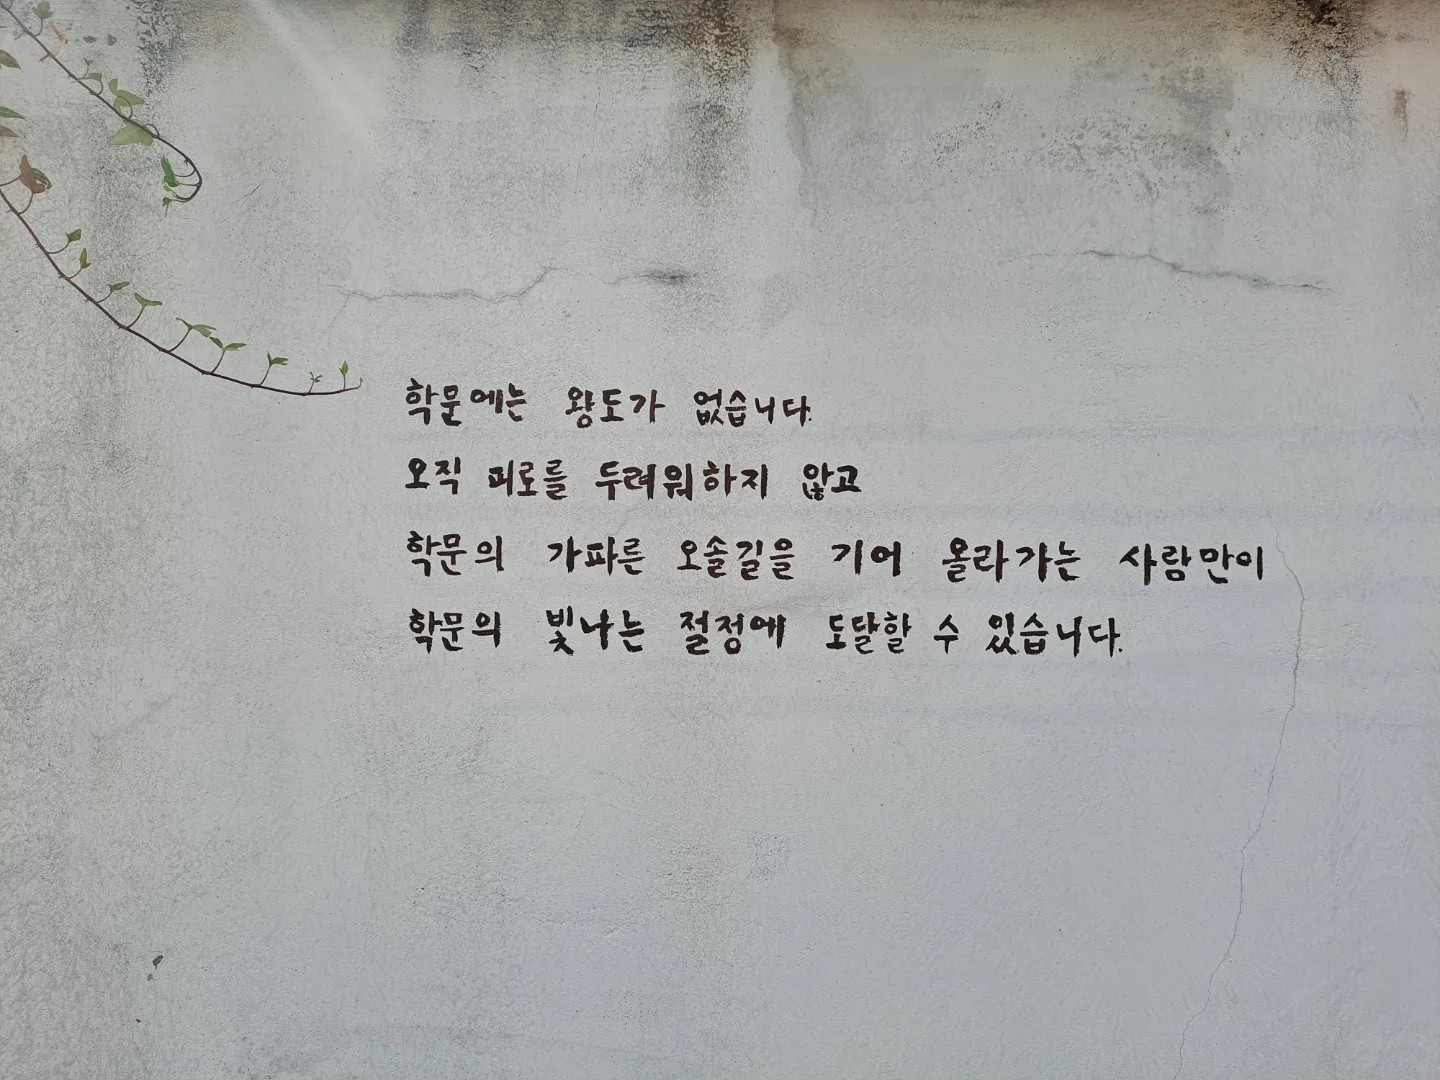 학문에는 왕도가 없습니다.
오직 피로를 두려워하지 않고
학문의 가파른 오솔길을 기어 올라가는 사람만이
학문의 빛나는 절정에 도달할 수 있습니다.